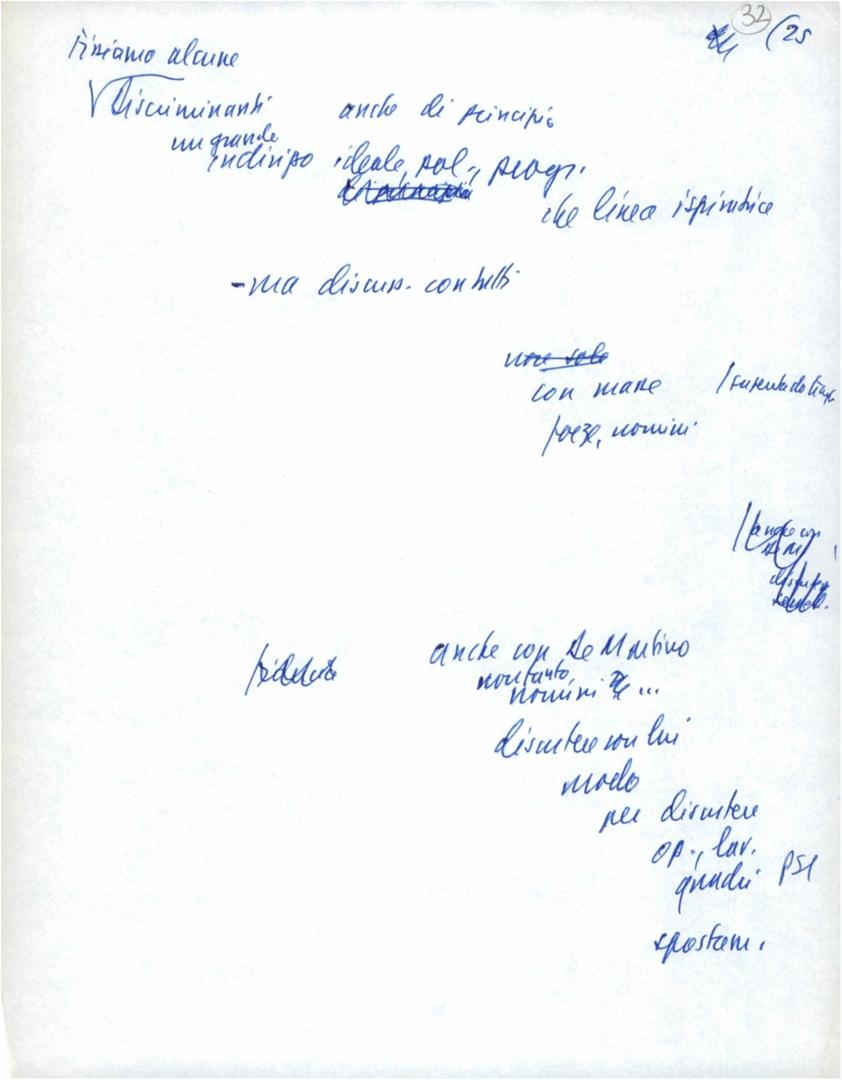 32
(25
Fissiamo alcune
Discriminanti anche di principio
un grande
indirizzo ideale, pol., progr.
che linea ispiratrice
- ma discuss. con tutti
non solo
con masse
forze, uomini
anche con De Martino
non tanto
uomini ...
discutere con lui
modo
per discutere
op., lav.
quadri PSI
spostam.